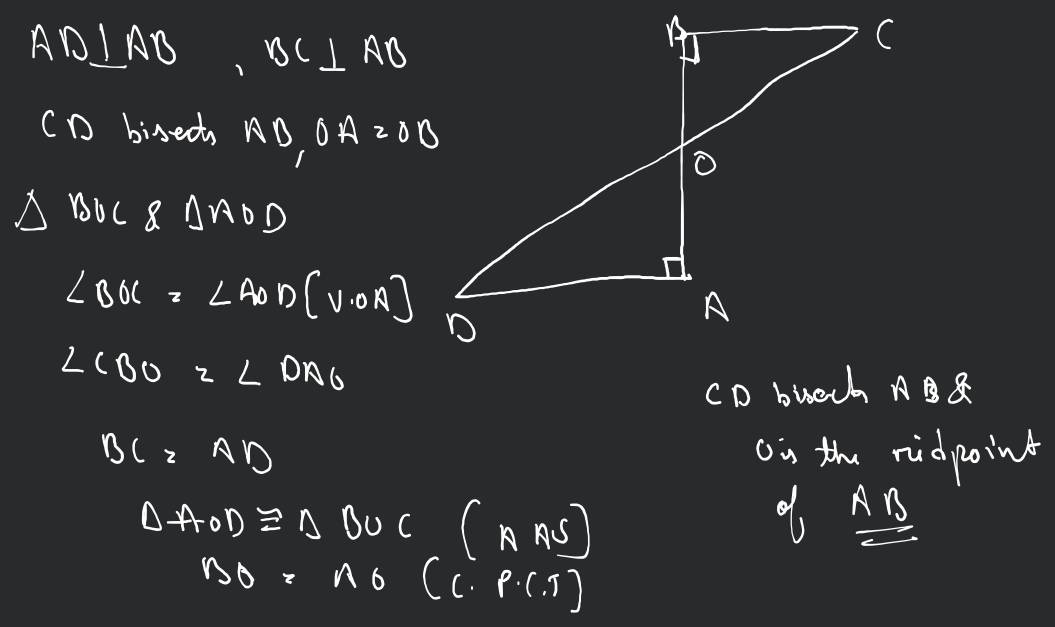 AD⊥AB , BC⊥AB
CD bisects AB, OA = OB
△ BOC & △AOD
∠BOC = ∠AOD [V.O.A]
∠CBO = ∠DAO
BC = AD
△AOD ≅ △BOC (AAS)
BO = AO (C.P.C.T)
B
C
O
D
A
CD bisects AB &
O is the midpoint
of AB